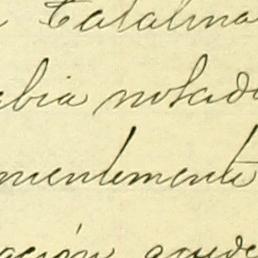 Catalina
abia notado
mentemente
ación